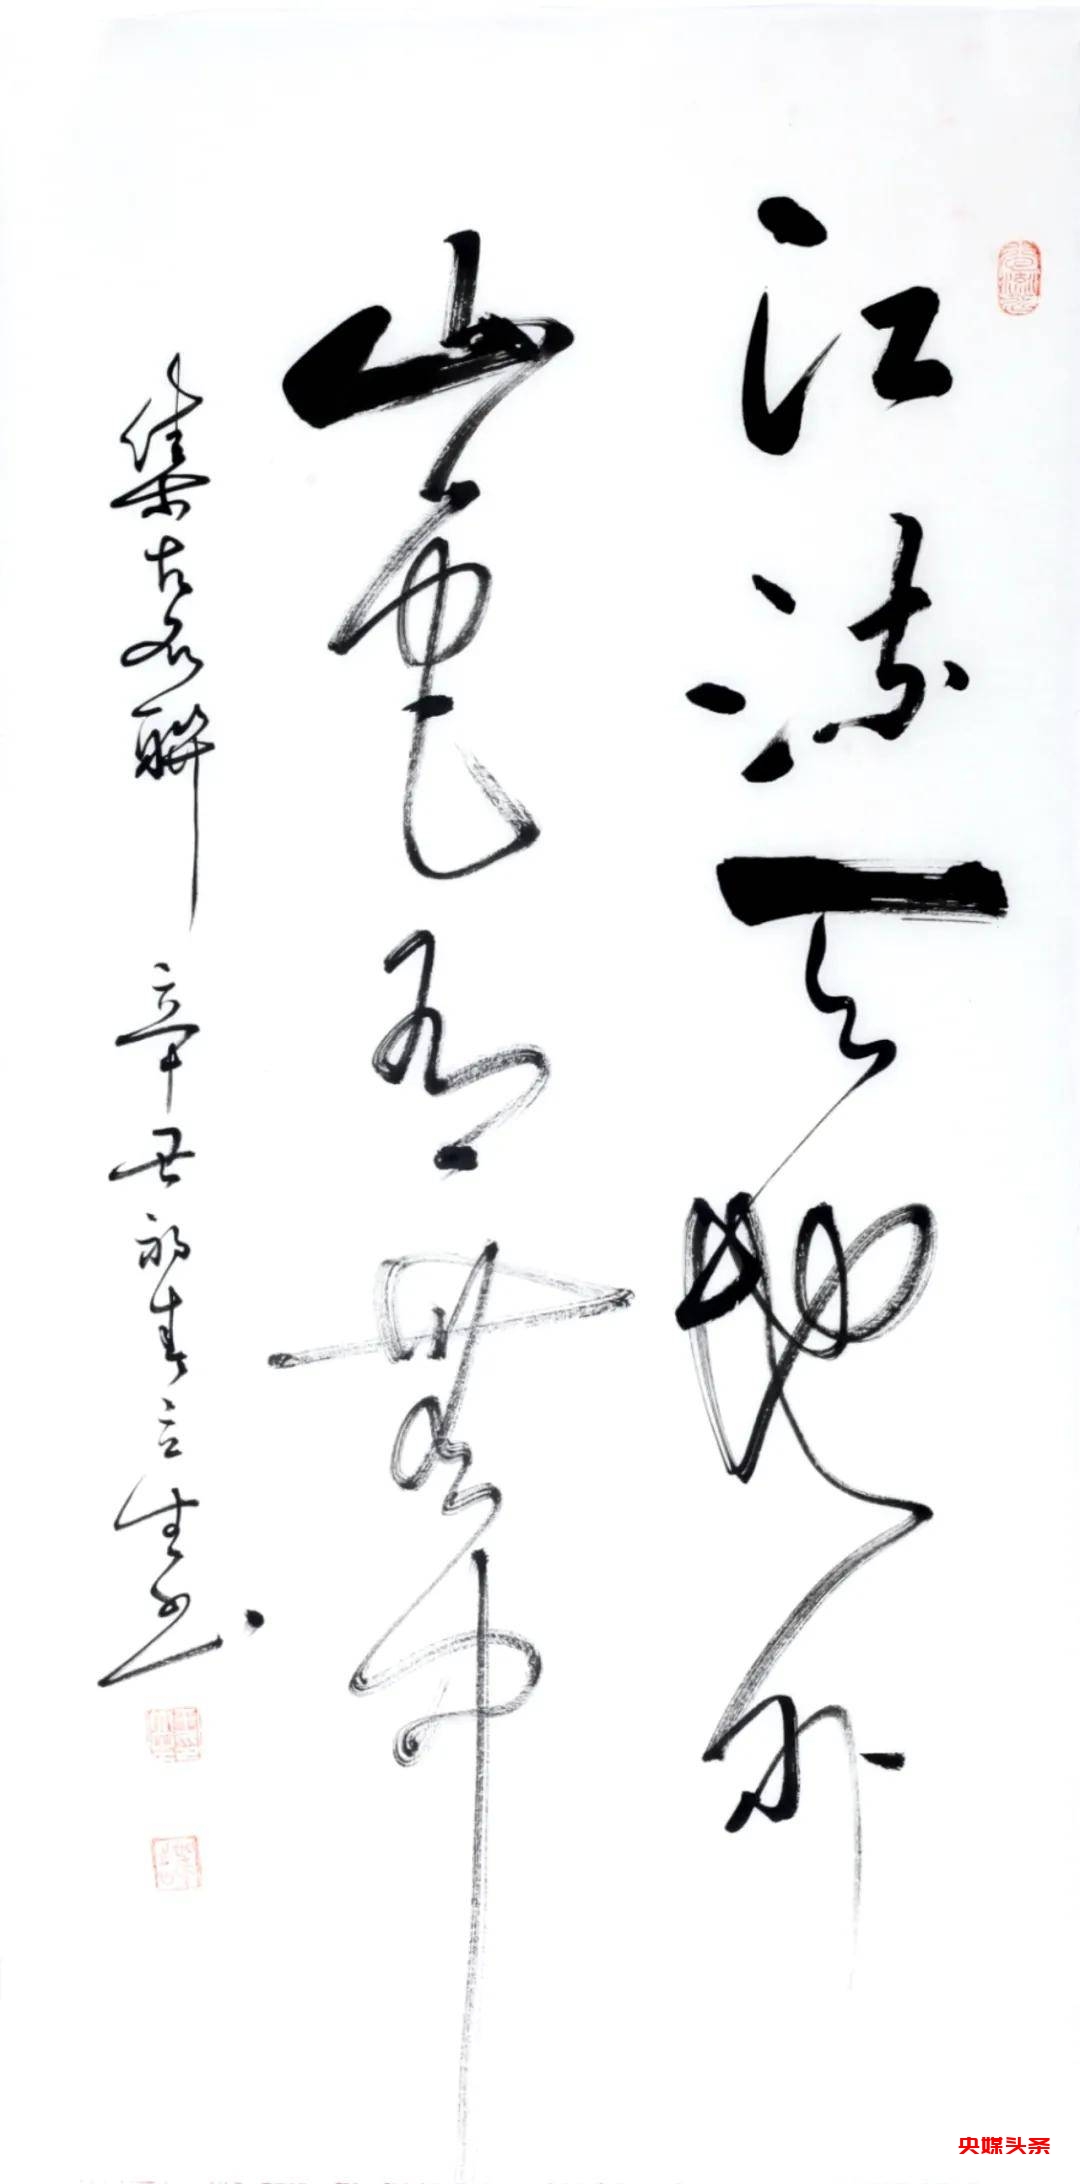 江流天地外
山色有無中
集古名聯 辛丑初春立生书
央媒头条